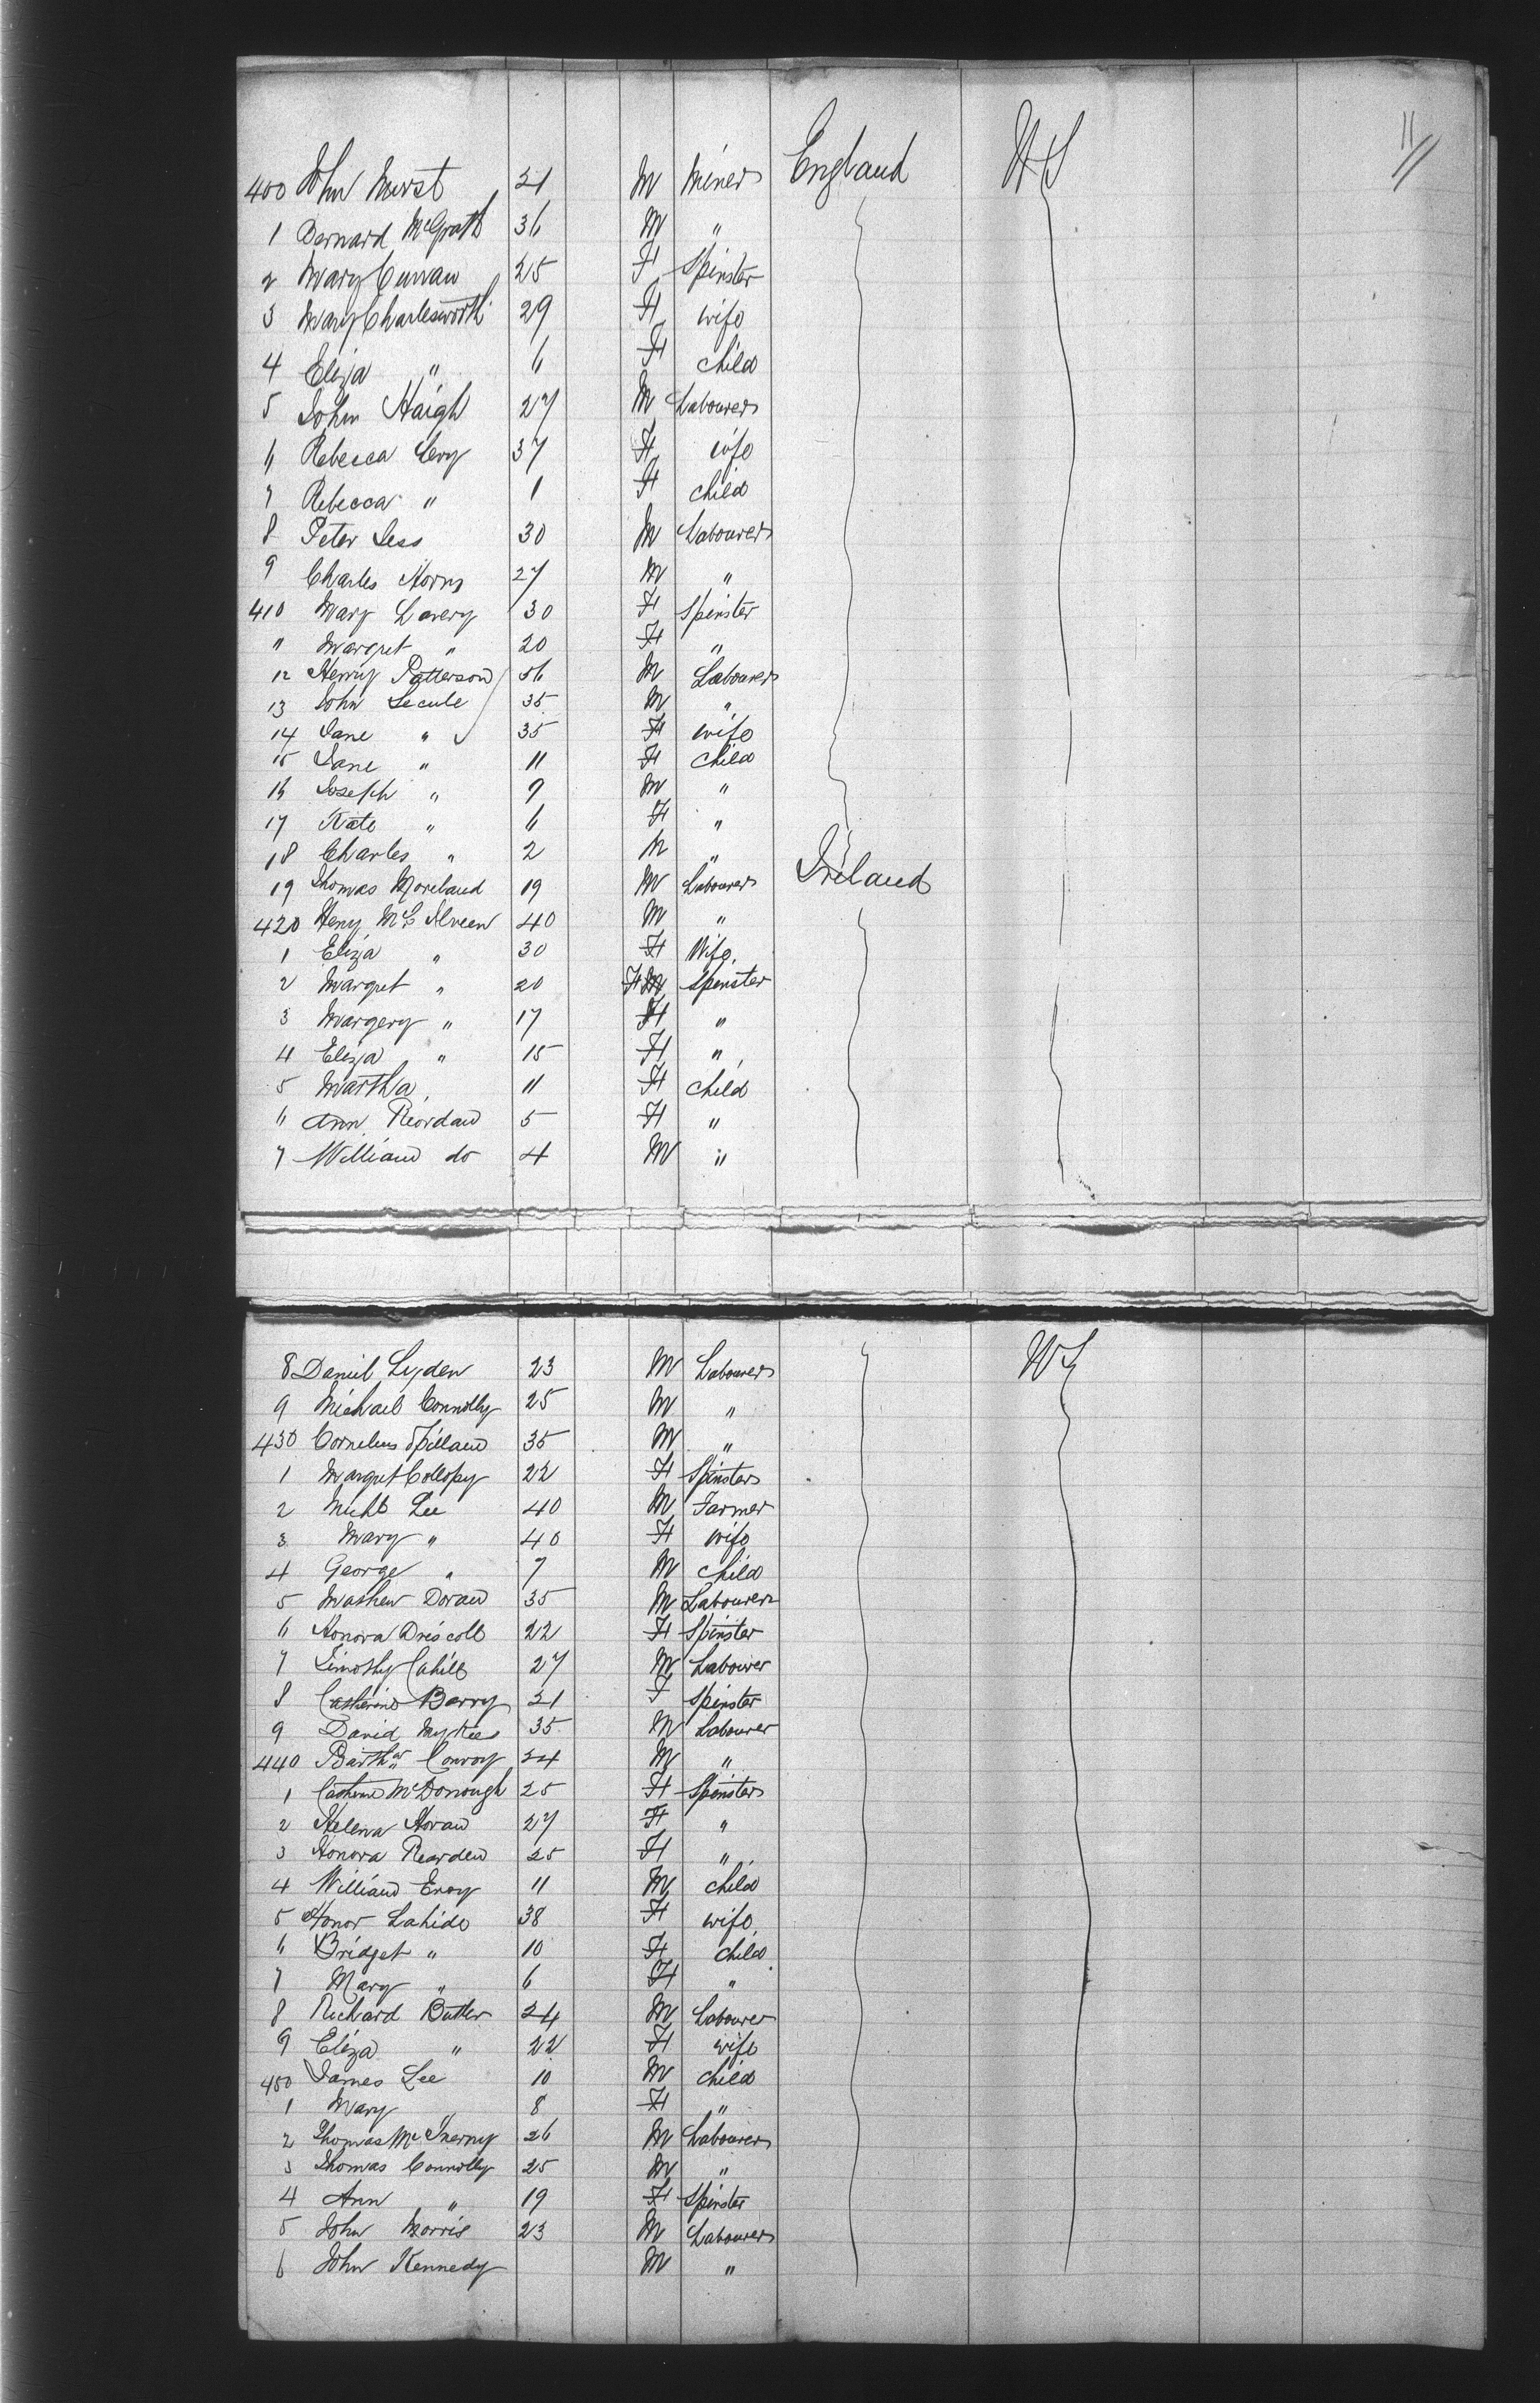 11
400 John Hurst 21 M Miner England US
1 Bernard McGrath 36 M "
2 Mary Curran 25 F Spinster
3 Mary Charlesworth 29 F wife
4 Eliza " 6 F child
5 John Haigh 27 M Labourer
6 Rebecca Levy 37 F wife
7 Rebecca " 1 F child
8 Peter Less 30 M Labourer
9 Charles Horn 27 M "
410 Mary Lavery 30 F Spinster
" Margret " 20 F "
12 Henry Patterson 56 M Labourer
13 John Secule 35 M "
14 Jane " 35 F wife
15 Jane " 11 F child
16 Joseph " 9 M "
17 Kate " 6 F "
18 Charles " 2 M "
19 Thomas Moreland 19 M Labourer Ireland
420 Heny McIlveen 40 M "
1 Eliza " 30 F Wife
2 Margret " 20 F Spinster
3 Margery " 17 F "
4 Eliza " 15 F "
5 Martha 11 F child
6 Ann Reordan 5 F "
7 William do 4 M "
8 Daniel Lyden 23 M Labourer US
9 Michael Connolly 25 M "
430 Cornelius Spillane 35 M "
1 Margret Collopy 22 F Spinster
2 Michl Lee 40 M Farmer
3 Mary " 40 F wife
4 George " 7 M child
5 Mathew Doran 35 M Labourer
6 Honora Driscoll 22 F Spinster
7 Timothy Cahill 27 M Labourer
8 Catherine Barry 21 F Spinster
9 David 35 M Labourer
440 Barthw Conroy 24 M "
1 Catherine McDonough 25 F Spinster
2 Helena Horan 27 F "
3 Honora Rearden 25 F "
4 William Eroy 11 M child
5 Honor Lahide 38 F wife
6 Bridget " 10 F child
7 Mary " 6 F "
8 Richard Butler 24 M Labourer
9 Eliza " 22 F wife
450 James Lee 10 M child
1 Mary " 8 F "
2 Thomas McInerny 26 M Labourer
3 Thomas Connolly 25 M "
4 Ann " 19 F Spinster
5 John Morris 23 M Labourer
6 John Kennedy M "